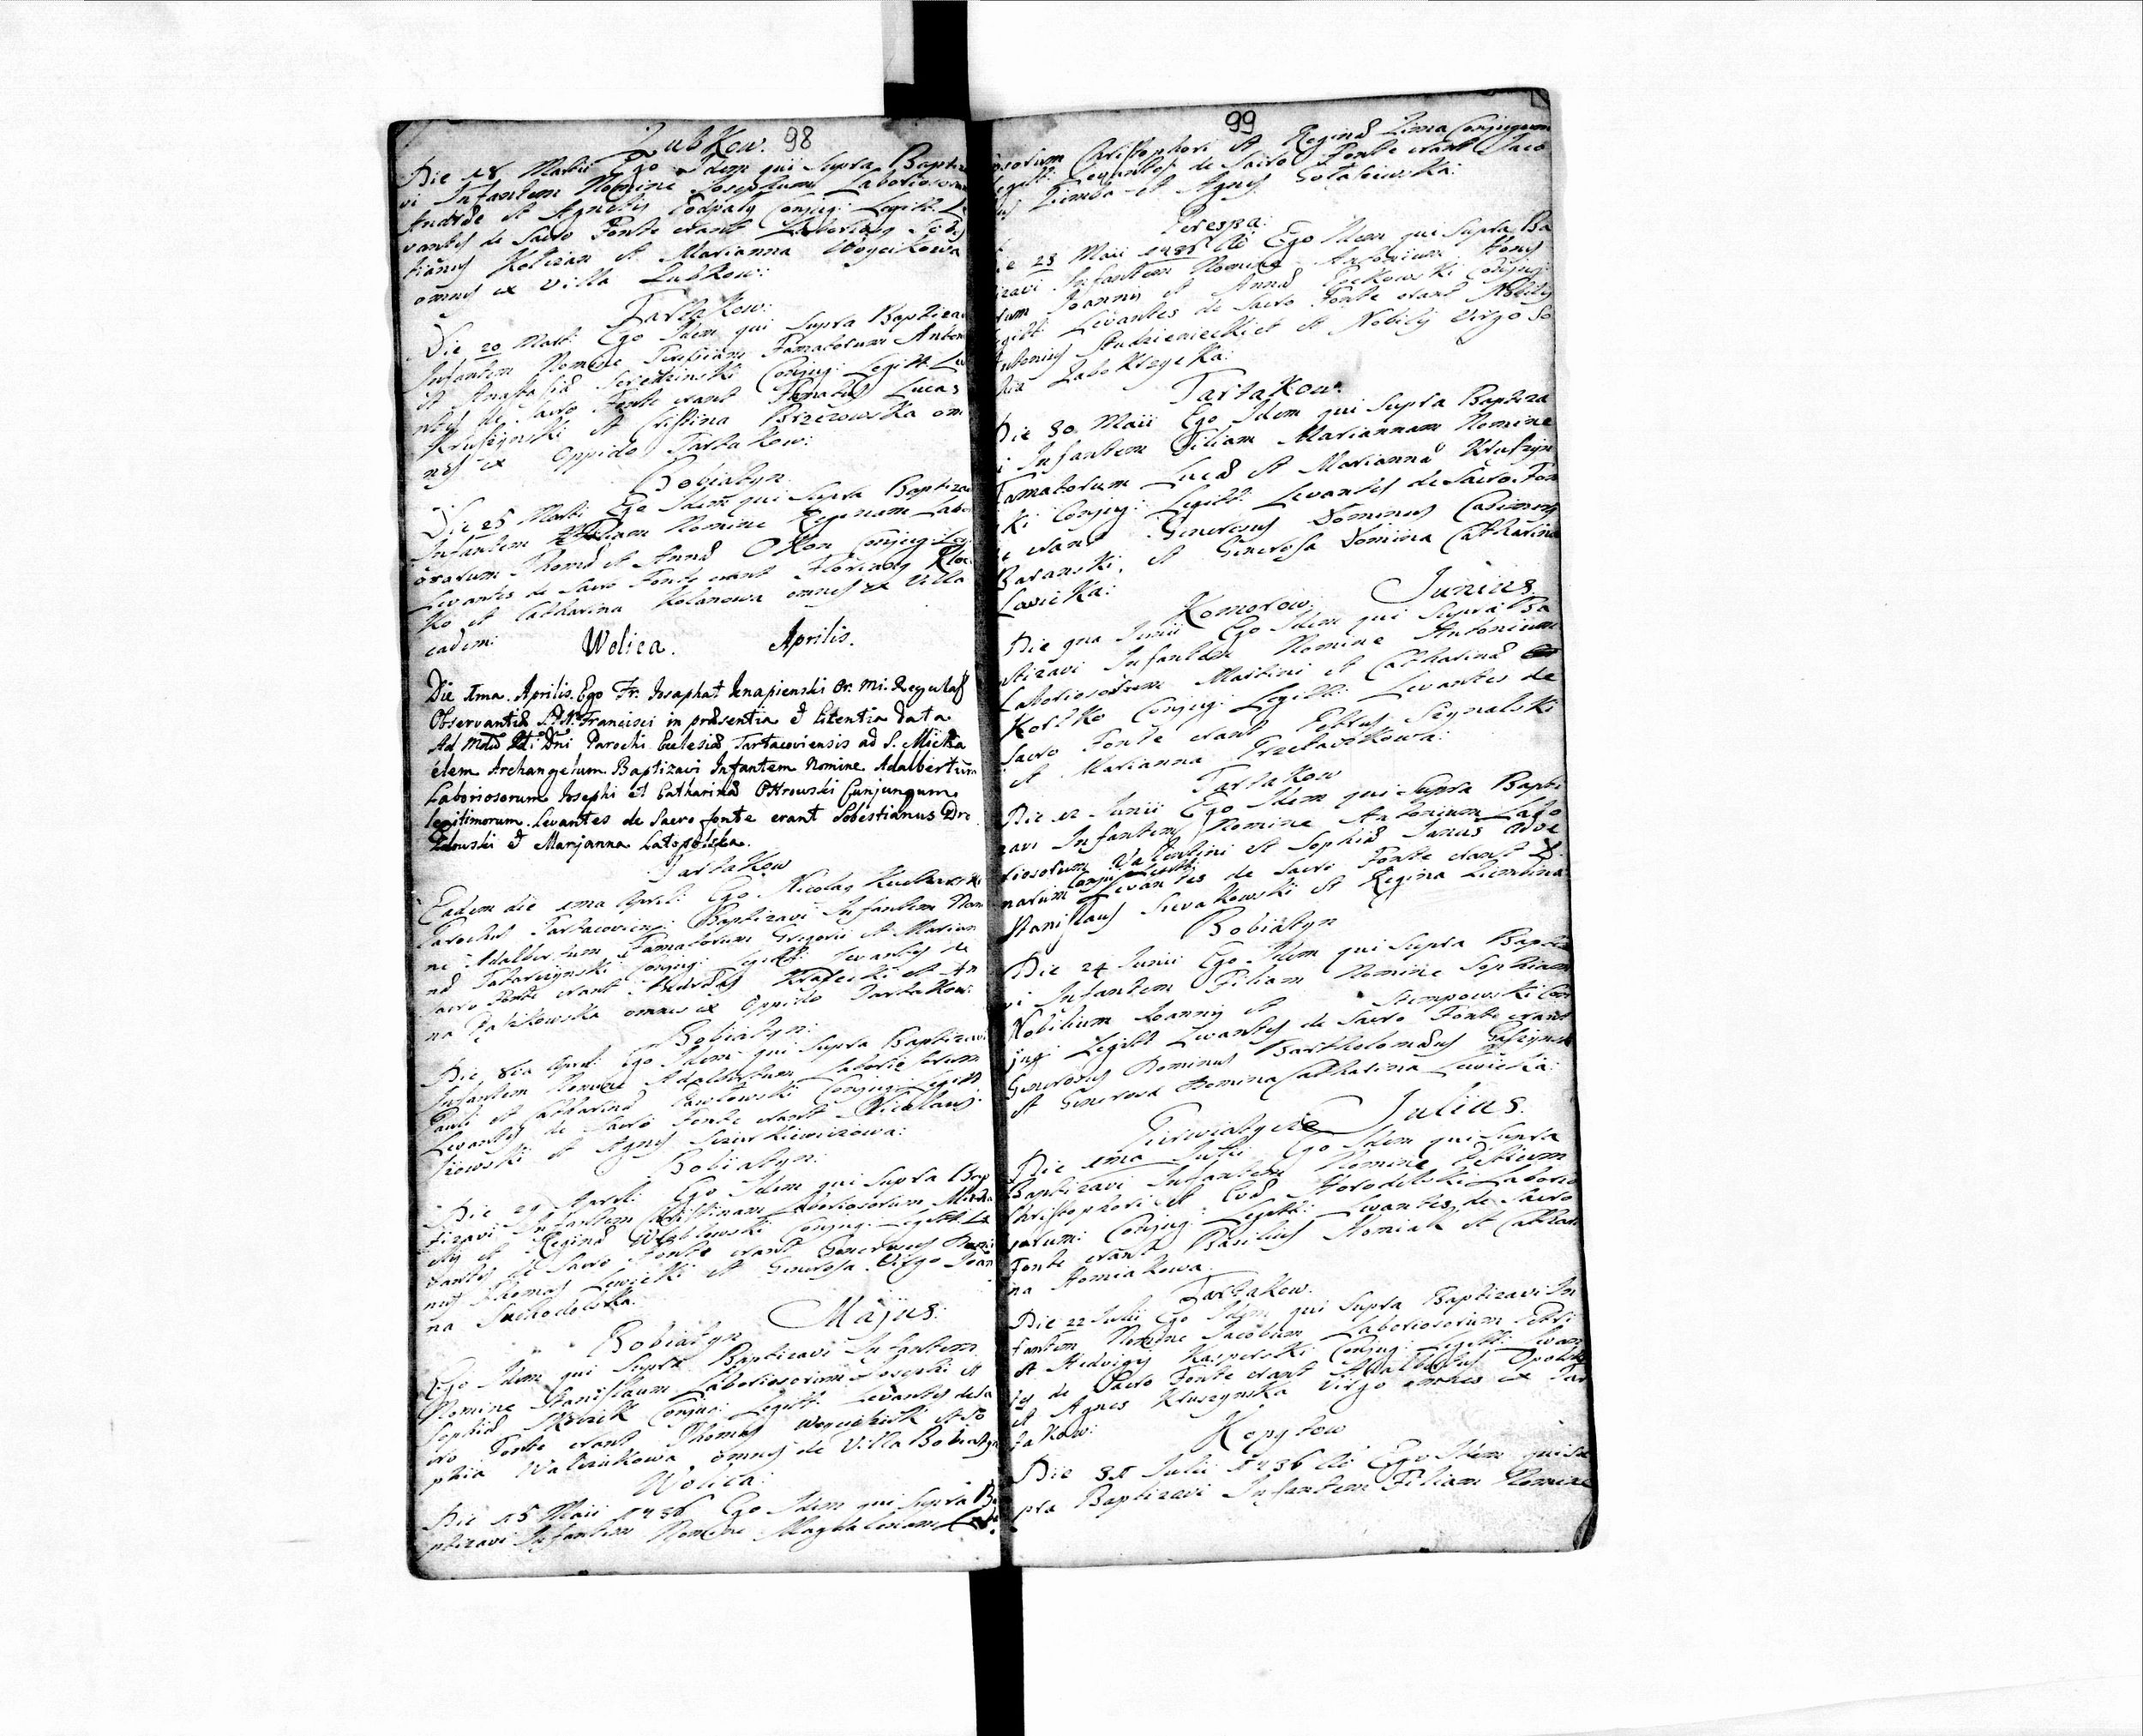 98
Zubkow.
Die 18 Martii Ego Idem qui Supra Bapti
vi Infantem Nomine Josephum Laboriosorum
Andreæ et Agnetis Podpały Conjug: Legitt: Le
vantes de Sacro Fonte erant Laboriosus Seb
tianus et Marianna Woycikowa
omnes ex Villa Zubkow:
Tartakow:
Die 20 Marti Ego Idem qui Supra Baptizavi
Infantem Nomine Famatorum Antoni
et Anastasiæ Seredzinski Conjug: Legitt: Le
ntes de Sacro Fonte erant Famatus Lucas
Kruszynski et Cristina Brzezowska om
nes ex Oppido Tartakow:
Bobiatyn
Die 25 Marti Ego Idem qui Supra Baptizavi
Infantem Filiam Nomine Reginam Labo
orarum Thomæ et Annæ Okon Conjug: Leg
Levantes de Sacro Fonte erant Florianus
ko et Catharina Kolanowa omnes ex Villa
eadem:
Wolica. Aprilis.
Die 1ma Aprilis. Ego Fr. Josaphat Knapienski Or: Mi: Regulas
Observantiæ S.P.N. Francisci in præsentia et licentia data
Ad Mdū Rdi Dni Parochi Eclesiæ Tartacoviensis ad S. Micha
elem Archangelum Baptizavi Infantem Nomine Adalbertum
Laboriosorum Josephi et Catharinæ Ostrowski Cunjungum
legitimorum. Levantes de Sacro fonte erant Sebestianus Dro
zdowski et Marjanna
Tartakow
Eadem die 1ma April: Ego Nicolaus
Parochus Tartacoviens: Baptizavi Infantem Nom
ne Adalbertum Famatorum Gregorii et Marian
næ Tatarczynski Conjug: Legitt: Levantes de
Sacro Fonte erant Andreas et An
na omnes ex Oppido Tartakow:
Bobiatyn:
Die 8va April: Ego Idem qui Supra Baptizavi
Infantem Nomine Adalbertum Laboriosorum
Pauli et Catharinæ Pawłowski Conjug: Legitt:
Levantes de Sacro Fonte erant Nicolaus
et Agnes
Bobiatyn:
Die 29 April: Ego Idem qui Supra Bap
tizavi Infantem Christinam Laboriosorum Micha
elis et Reginæ Conjug: Legitt: Le
vantes de Sacro Fonte erant Generosus Domi
nus Thomas Lewicki et Generosa Virgo Joan
na Suchodolska:
Majus:
Bobiatyn
Ego Idem qui Supra Baptizavi Infantem
Nomine Stanislaum Laboriosorum Josephi et
Sophiæ Conjug: Legitt: Levantes de Sa
cro Fonte erant Thomas et So
phia Walczukowa omnes de Villa Bobiatyn
Wolica:
Die 15 Maii 1736 Ego Idem qui Supra Ba
ptizavi Infantem Nomine Magdalenam Labo
99
osorum Christophori et Reginæ Zima Conjugum
Legitt: Levantes de Sacro Fonte erant Jaco
bus Ziemba et Agnes Gołasiewska:
Perespa:
Die 28 Maii 1736 Ao Ego Idem qui Supra Ba
tizavi Infantem Nomine Antonium Hones
rum Joannis et Annæ Conjug:
Legitt: Levantes de Sacro Fonte erant Nobilis
Antonius et Nobilis Virgo So
phia Zabokrzycka:
Tartakow.
Die 30 Maii Ego Idem qui Supra Baptiza
vi Infantem Filiam Mariannam Nomine
Famatorum Lucæ et Mariannæ Kruszyn
ski Conjug: Legitt: Levantes de Sacro Fon
te erant Generosus Dominus Casimirus
Baranski, et Generosa Domina Catharina
Lawicka:
Komorow: Junius.
Die Junii Ego Idem qui Supra Ba
ptizavi Infantem Nomine Antonium
Laboriosorum Martini et Catharinæ
Conjug: Legitt: Levantes de
Sacro Fonte erant Petrus Sygnalski
et Marianna
Tartakow
Die 12 Junii Ego Idem qui Supra Bapti
zavi Infantem Nomine Antonium Labo
riosorum Valentini et Sophiæ Janus adve
Conjug: Legitt:
narum Levantes de Sacro Fonte erant
Stanislaus et Regina Ziembina
Bobiatyn
Die 24 Junii Ego Idem qui Supra Baptiza
vi Infantem Filiam Nomine Sophiam
Nobilium Joannis et Stempowski Con
jug: Legitt: Levantes de Sacro Fonte erant
Generosus Dominus Bartholomæus
et Generosa Domina Catharina Lewicka:
Julius.
Die 1ma Julii Ego Idem qui Supra
Baptizavi Infantem Nomine Petrum
Christophori et Evæ Horodelski Laborio
sorum: Conjug: Legitt: Levantes de Sacro
Fonte erant Basilius Homiak et Cathari
na Homiakowa.
Tartakow.
Die 22 Julii Ego Idem qui Supra Baptizavi In
fantem Nomine Jacobum Laboriosorum Petri
et Hedvigis Kasperski Conjug: Legitt: Levan
tes de Sacro Fonte erant Adalbertus Opolsky
et Agnes Kruszynska Virgo omnes ex Tar
takow:
Kopytow
Die 31 Julii 1736 Ao Ego Idem qui Su
pra Baptizavi Infantem Filiam Nomine